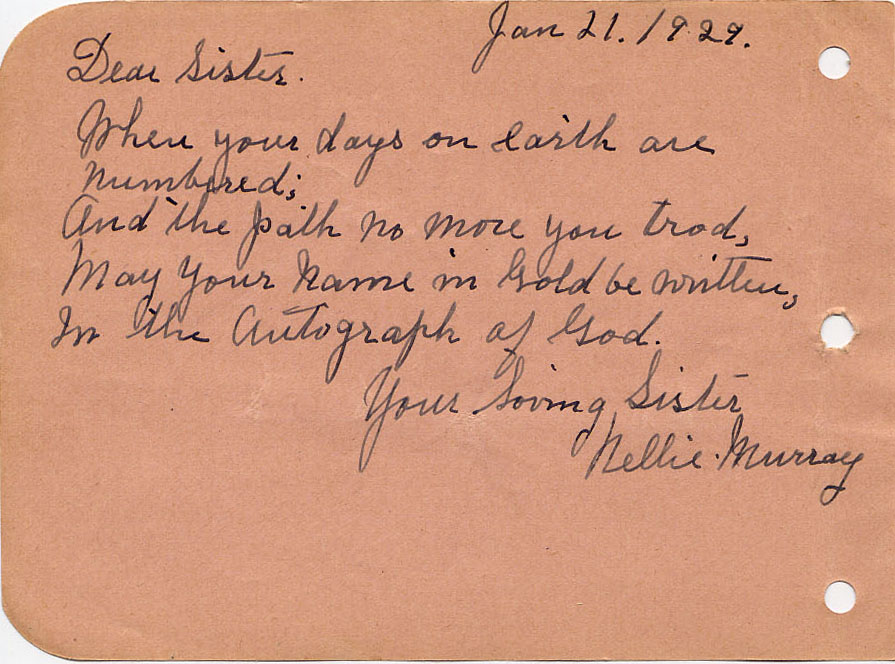 Jan 21. 1929.
Dear Sister.
When your days on earth are
numbered;
And the path no more you trod,
May your name in Gold be written,
In the Autograph of God.
Your Loving Sister
Nellie Murray